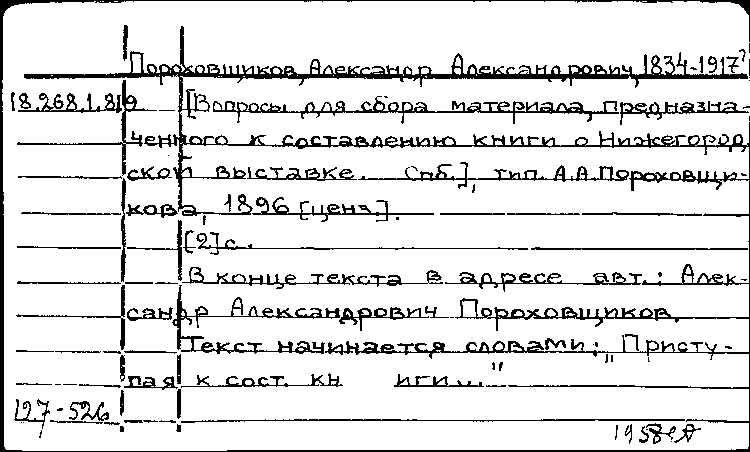 Пороховщиков, Александр Александрович, 1834-1917?
18.268.1.819 [Вопросы для сбора материала, предназна-
ченного к составлению книги о Нижегород
ской выставке. Спб.], тип. А.А.Пороховщи-
кова, 1896 [ценз.].
[2] с.
В конце текста в адресе авт.: Алек-
сандр Александрович Пороховщиков.
Текст начинается словами: „Присту-
пая к сост. кн иги..."
127-526
1958